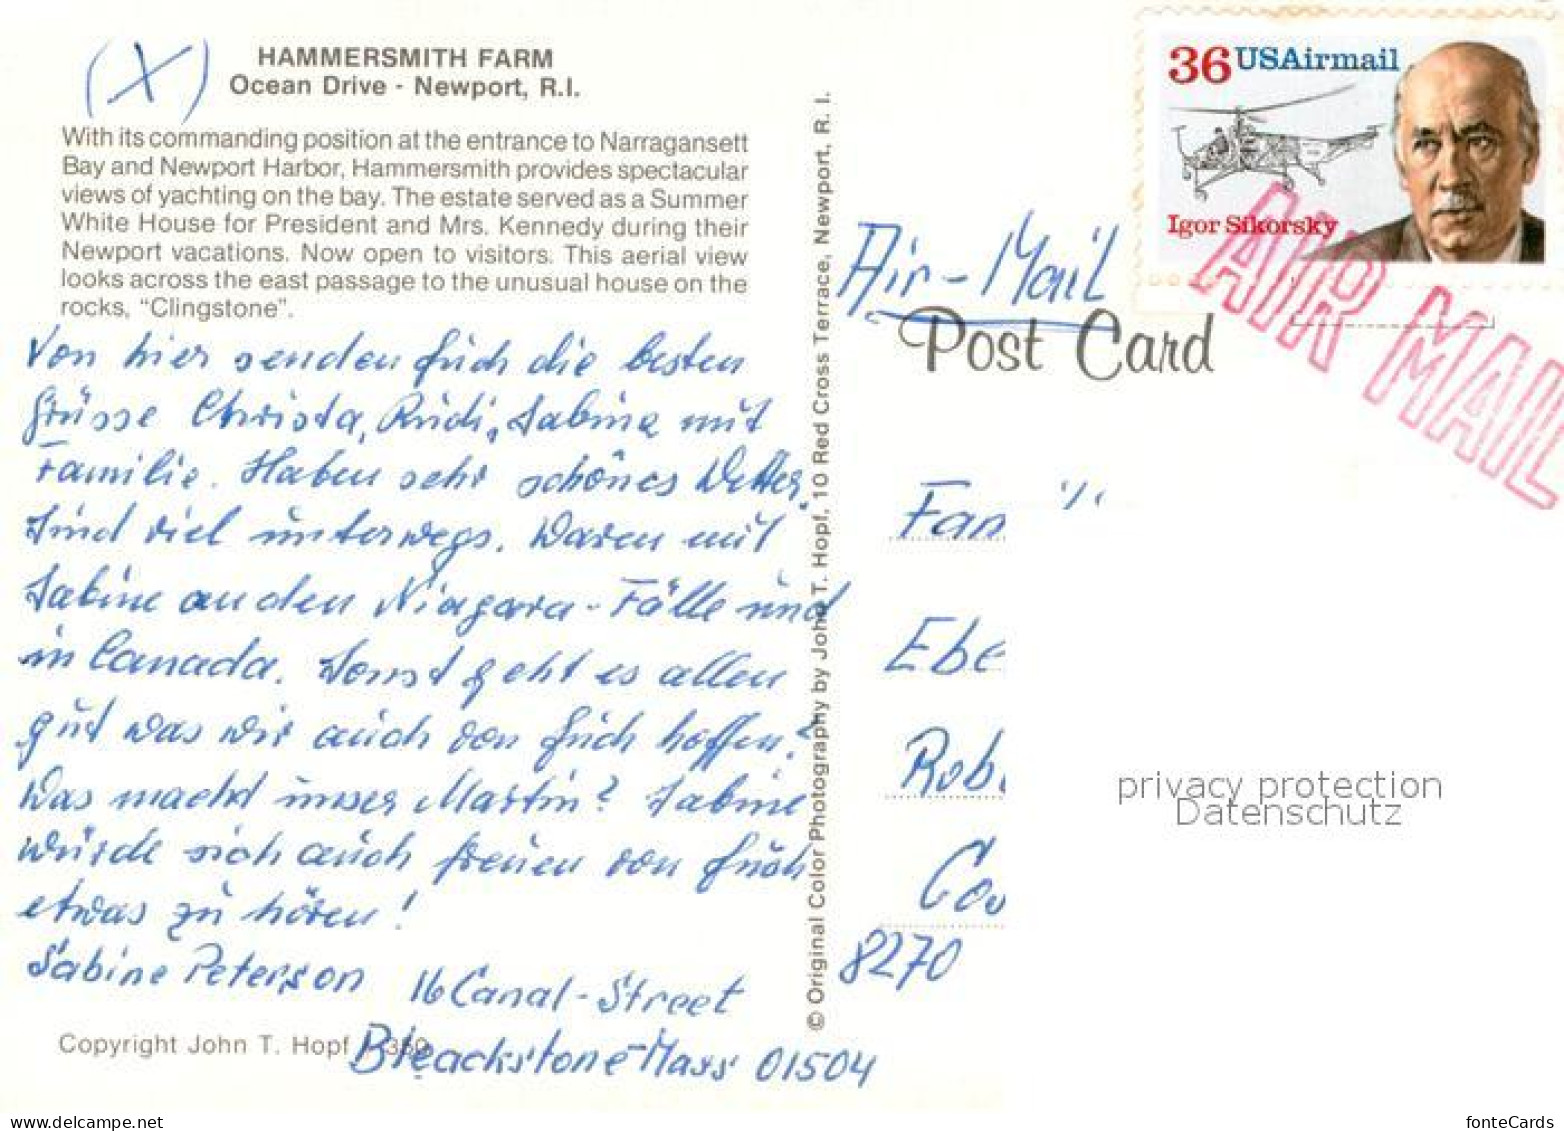 (X)
HAMMERSMITH FARM
Ocean Drive - Newport, R.I.
With its commanding position at the entrance to Narragansett
Bay and Newport Harbor, Hammersmith provides spectacular
views of yachting on the bay. The estate served as a Summer
White House for President and Mrs. Kennedy during their
Newport vacations. Now open to visitors. This aerial view
looks across the east passage to the unusual house on the
rocks, “Clingstone”.
Von hier senden Euch die besten
Grüsse Christa, Rudi, Sabine mit
Familie. Haben sehr schönes Wetter.
Sind viel unterwegs. Waren mit
Sabine an den Niagara-Fälle und
in Canada. Sonst geht es allen
gut was wir auch von Euch hoffen.
Was macht unser Martin? Sabine
würde sich auch freuen von Euch
etwas zu hören!
Sabine Peterson 16 Canal-Street
Bleackstone-Mass 01504
Copyright John T. Hopf
© Original Color Photography by John T. Hopf, 10 Red Cross Terrace, Newport, R. I.
36 USAirmail
Igor Sikorsky
AIR MAIL
Air-Mail
Post Card
Fam
Ebe
Rob
Cov
8270
privacy protection
Datenschutz
www.delcampe.net
fonteCards